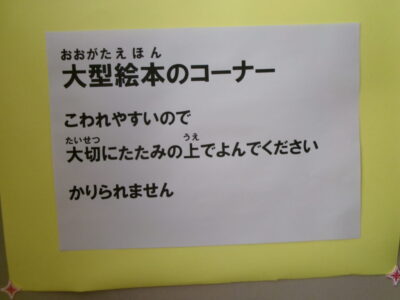 おおがたえほん
大型絵本のコーナー
こわれやすいので
たいせつ うえ
大切にたたみの上でよんでください
かりられません